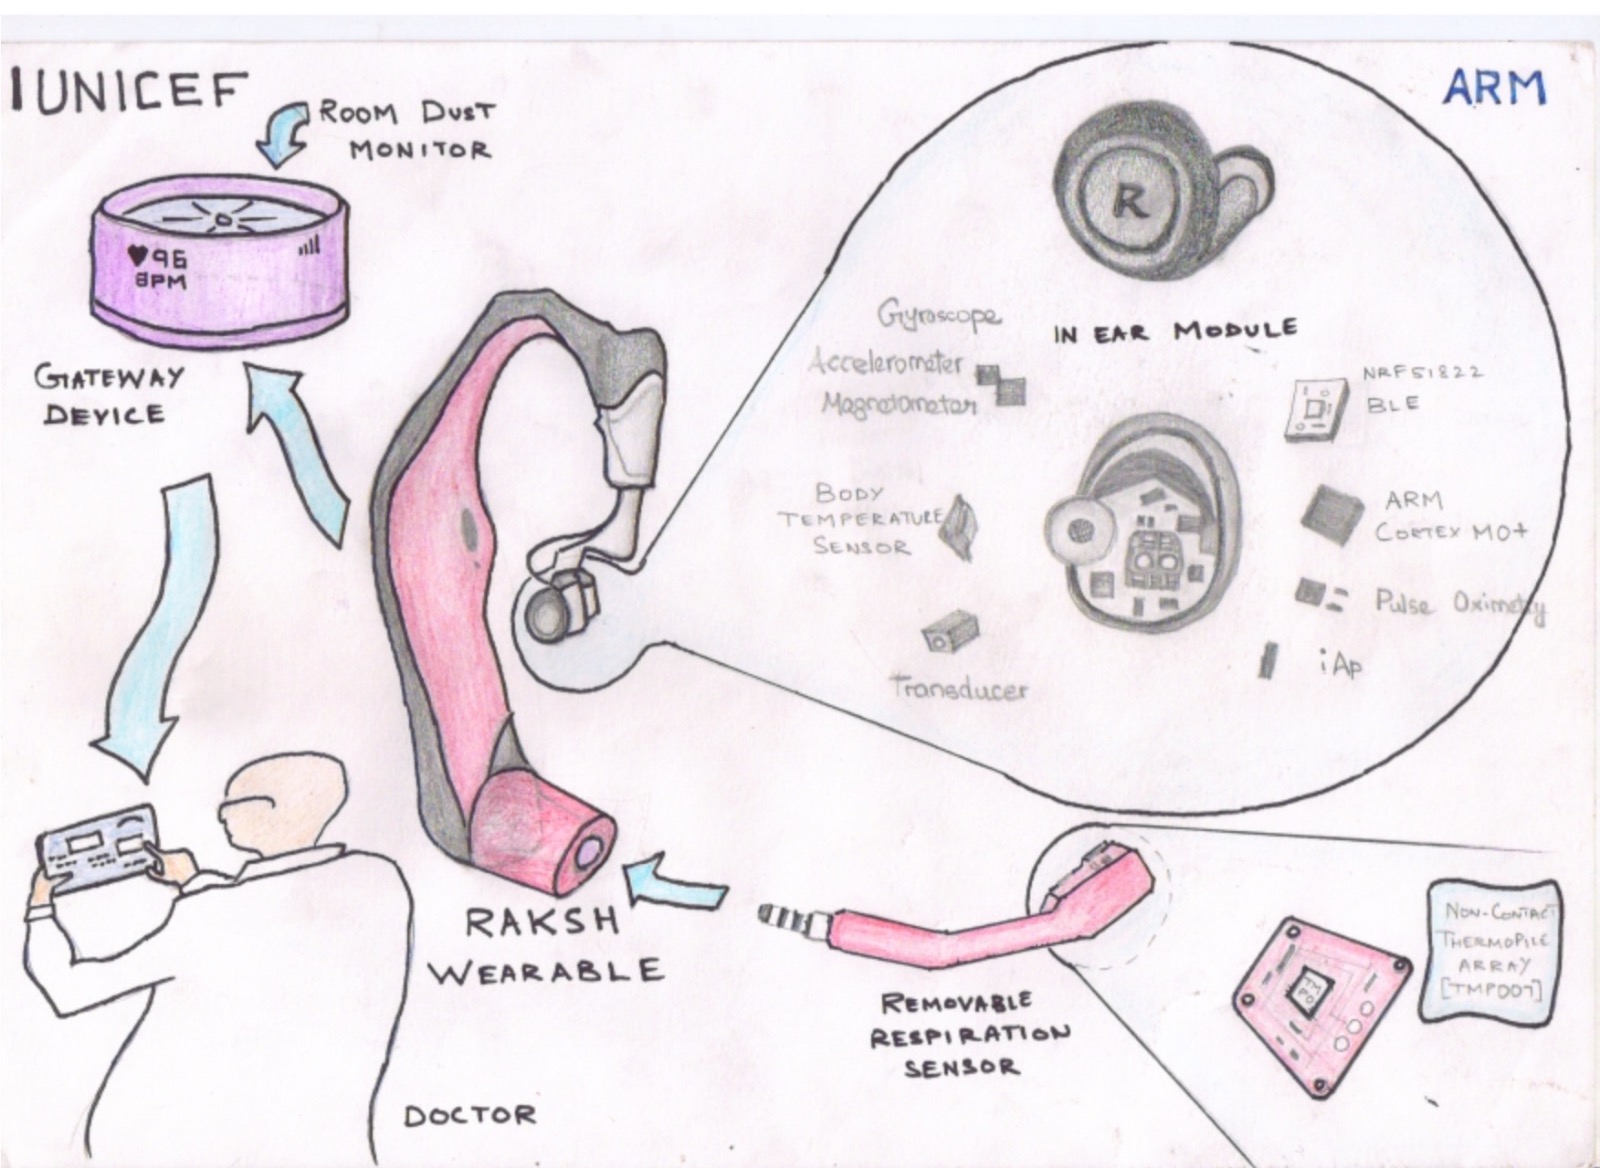 UNICEF
ARM
ROOM DUST
MONITOR
♥96
BPM
GATEWAY
DEVICE
R
IN EAR MODULE
Gyroscope
Accelerometer
Magnetometer
NRF51822
BLE
BODY
TEMPERATURE
SENSOR
ARM
CORTEX M0+
Pulse Oximetry
iAp
Transducer
RAKSH
WEARABLE
REMOVABLE
RESPIRATION
SENSOR
NON-CONTACT
THERMOPILE
ARRAY
[TMP007]
DOCTOR